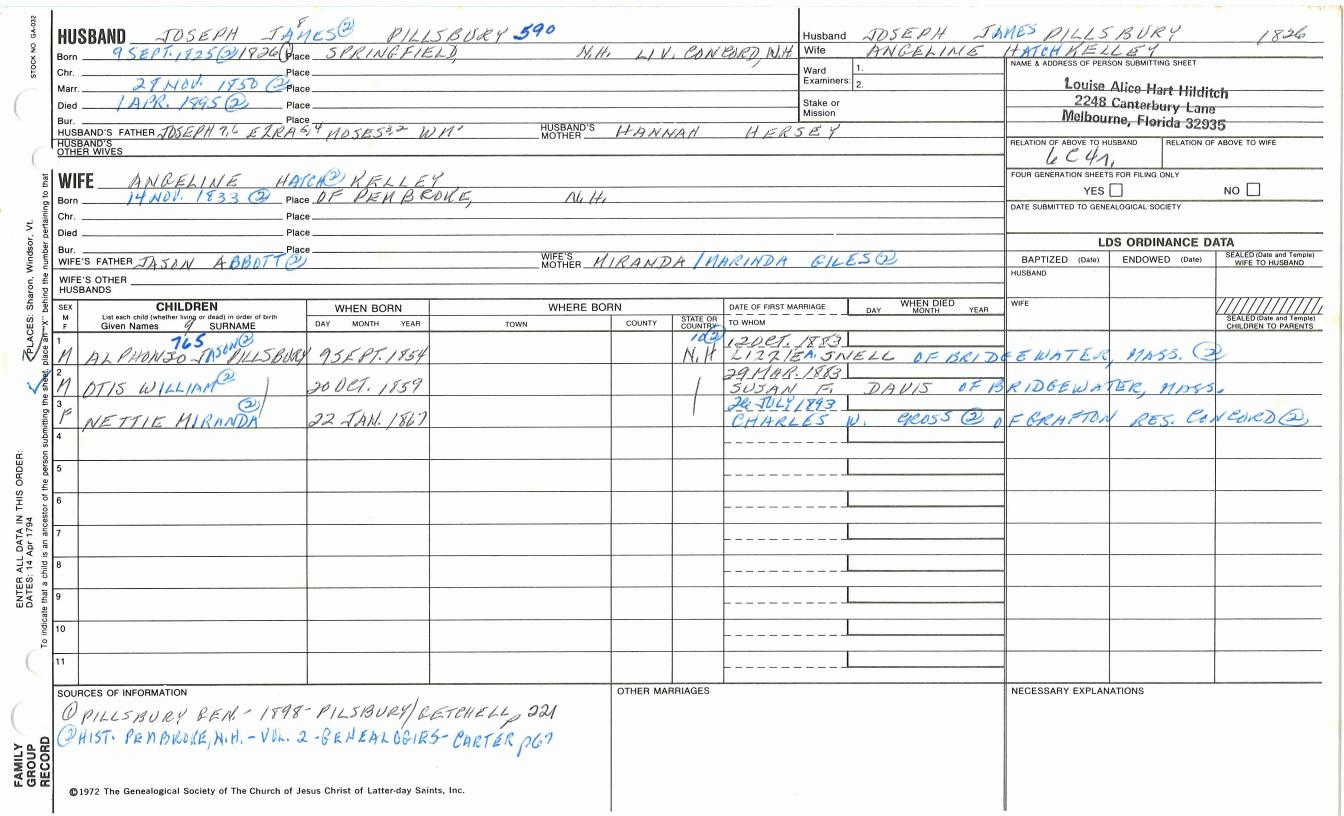 STOCK NO. GA-032
HUSBAND JOSEPH JAMES② 8 PILLSBURY 590
Born 9 SEPT. 1825② 1826① Place SPRINGFIELD, N.H. LIV. CONCORD, N.H
Chr. Place
Marr. 29 NOV. 1850② Place
Died 1 APR. 1895② Place
Bur. Place
HUSBAND'S FATHER JOSEPH 7,6 EZRA 5,4 MOSES 3,2 WM' HUSBAND'S MOTHER HANNAH HERSEY
HUSBAND'S OTHER WIVES
WIFE ANGELINE HATCH② KELLEY
Born 14 NOV. 1833② Place OF PEMBROKE, N.H.
Chr. Place
Died Place
Bur. Place
WIFE'S FATHER JASON ABBOTT② WIFE'S MOTHER MIRANDA /MARINDA GILES②
WIFE'S OTHER HUSBANDS
Husband JOSEPH JAMES PILLSBURY 1826
Wife ANGELINE HATCH KELLEY
Ward Examiners: 1.
2.
Stake or Mission
NAME & ADDRESS OF PERSON SUBMITTING SHEET
Louise Alice Hart Hilditch
2248 Canterbury Lane
Melbourne, Florida 32935
RELATION OF ABOVE TO HUSBAND RELATION OF ABOVE TO WIFE
6C4r,
FOUR GENERATION SHEETS FOR FILING ONLY
YES NO
DATE SUBMITTED TO GENEALOGICAL SOCIETY
LDS ORDINANCE DATA
BAPTIZED (Date) ENDOWED (Date) SEALED (Date and Temple) WIFE TO HUSBAND
HUSBAND
WIFE
SEALED (Date and Temple) CHILDREN TO PARENTS
SEX M F CHILDREN List each child (whether living or dead) in order of birth Given Names 9 SURNAME WHEN BORN DAY MONTH YEAR WHERE BORN TOWN COUNTY STATE OR COUNTRY DATE OF FIRST MARRIAGE TO WHOM WHEN DIED DAY MONTH YEAR
1 765 10② 12 OCT. 1883
M ALPHONZO JASON② PILLSBURY 9 SEPT. 1854 N.H LIZZIE A. SNELL OF BRIDGEWATER, MASS. ②
2 29 MAR. 1883
M OTIS WILLIAM② 20 OCT. 1859 SUSAN F. DAVIS OF BRIDGEWATER, MASS.
3 26 JULY 1893
F NETTIE MIRANDA② 22 JAN. 1867 CHARLES W. GROSS② OF GRAFTON RES. CONCORD②
4
5
6
7
8
9
10
11
SOURCES OF INFORMATION
① PILLSBURY GEN.- 1898- PILSBURY/GETCHELL p 221
② HIST. PEMBROKE, N.H. - VOL. 2 - GENEALOGIES - CARTER p67
OTHER MARRIAGES
NECESSARY EXPLANATIONS
©1972 The Genealogical Society of The Church of Jesus Christ of Latter-day Saints, Inc.
FAMILY GROUP RECORD
ENTER ALL DATA IN THIS ORDER:
DATES: 14 Apr 1794
PLACES: Sharon, Windsor, Vt.
To indicate that a child is an ancestor of the person submitting the sheet, place an "X" behind the number pertaining to that